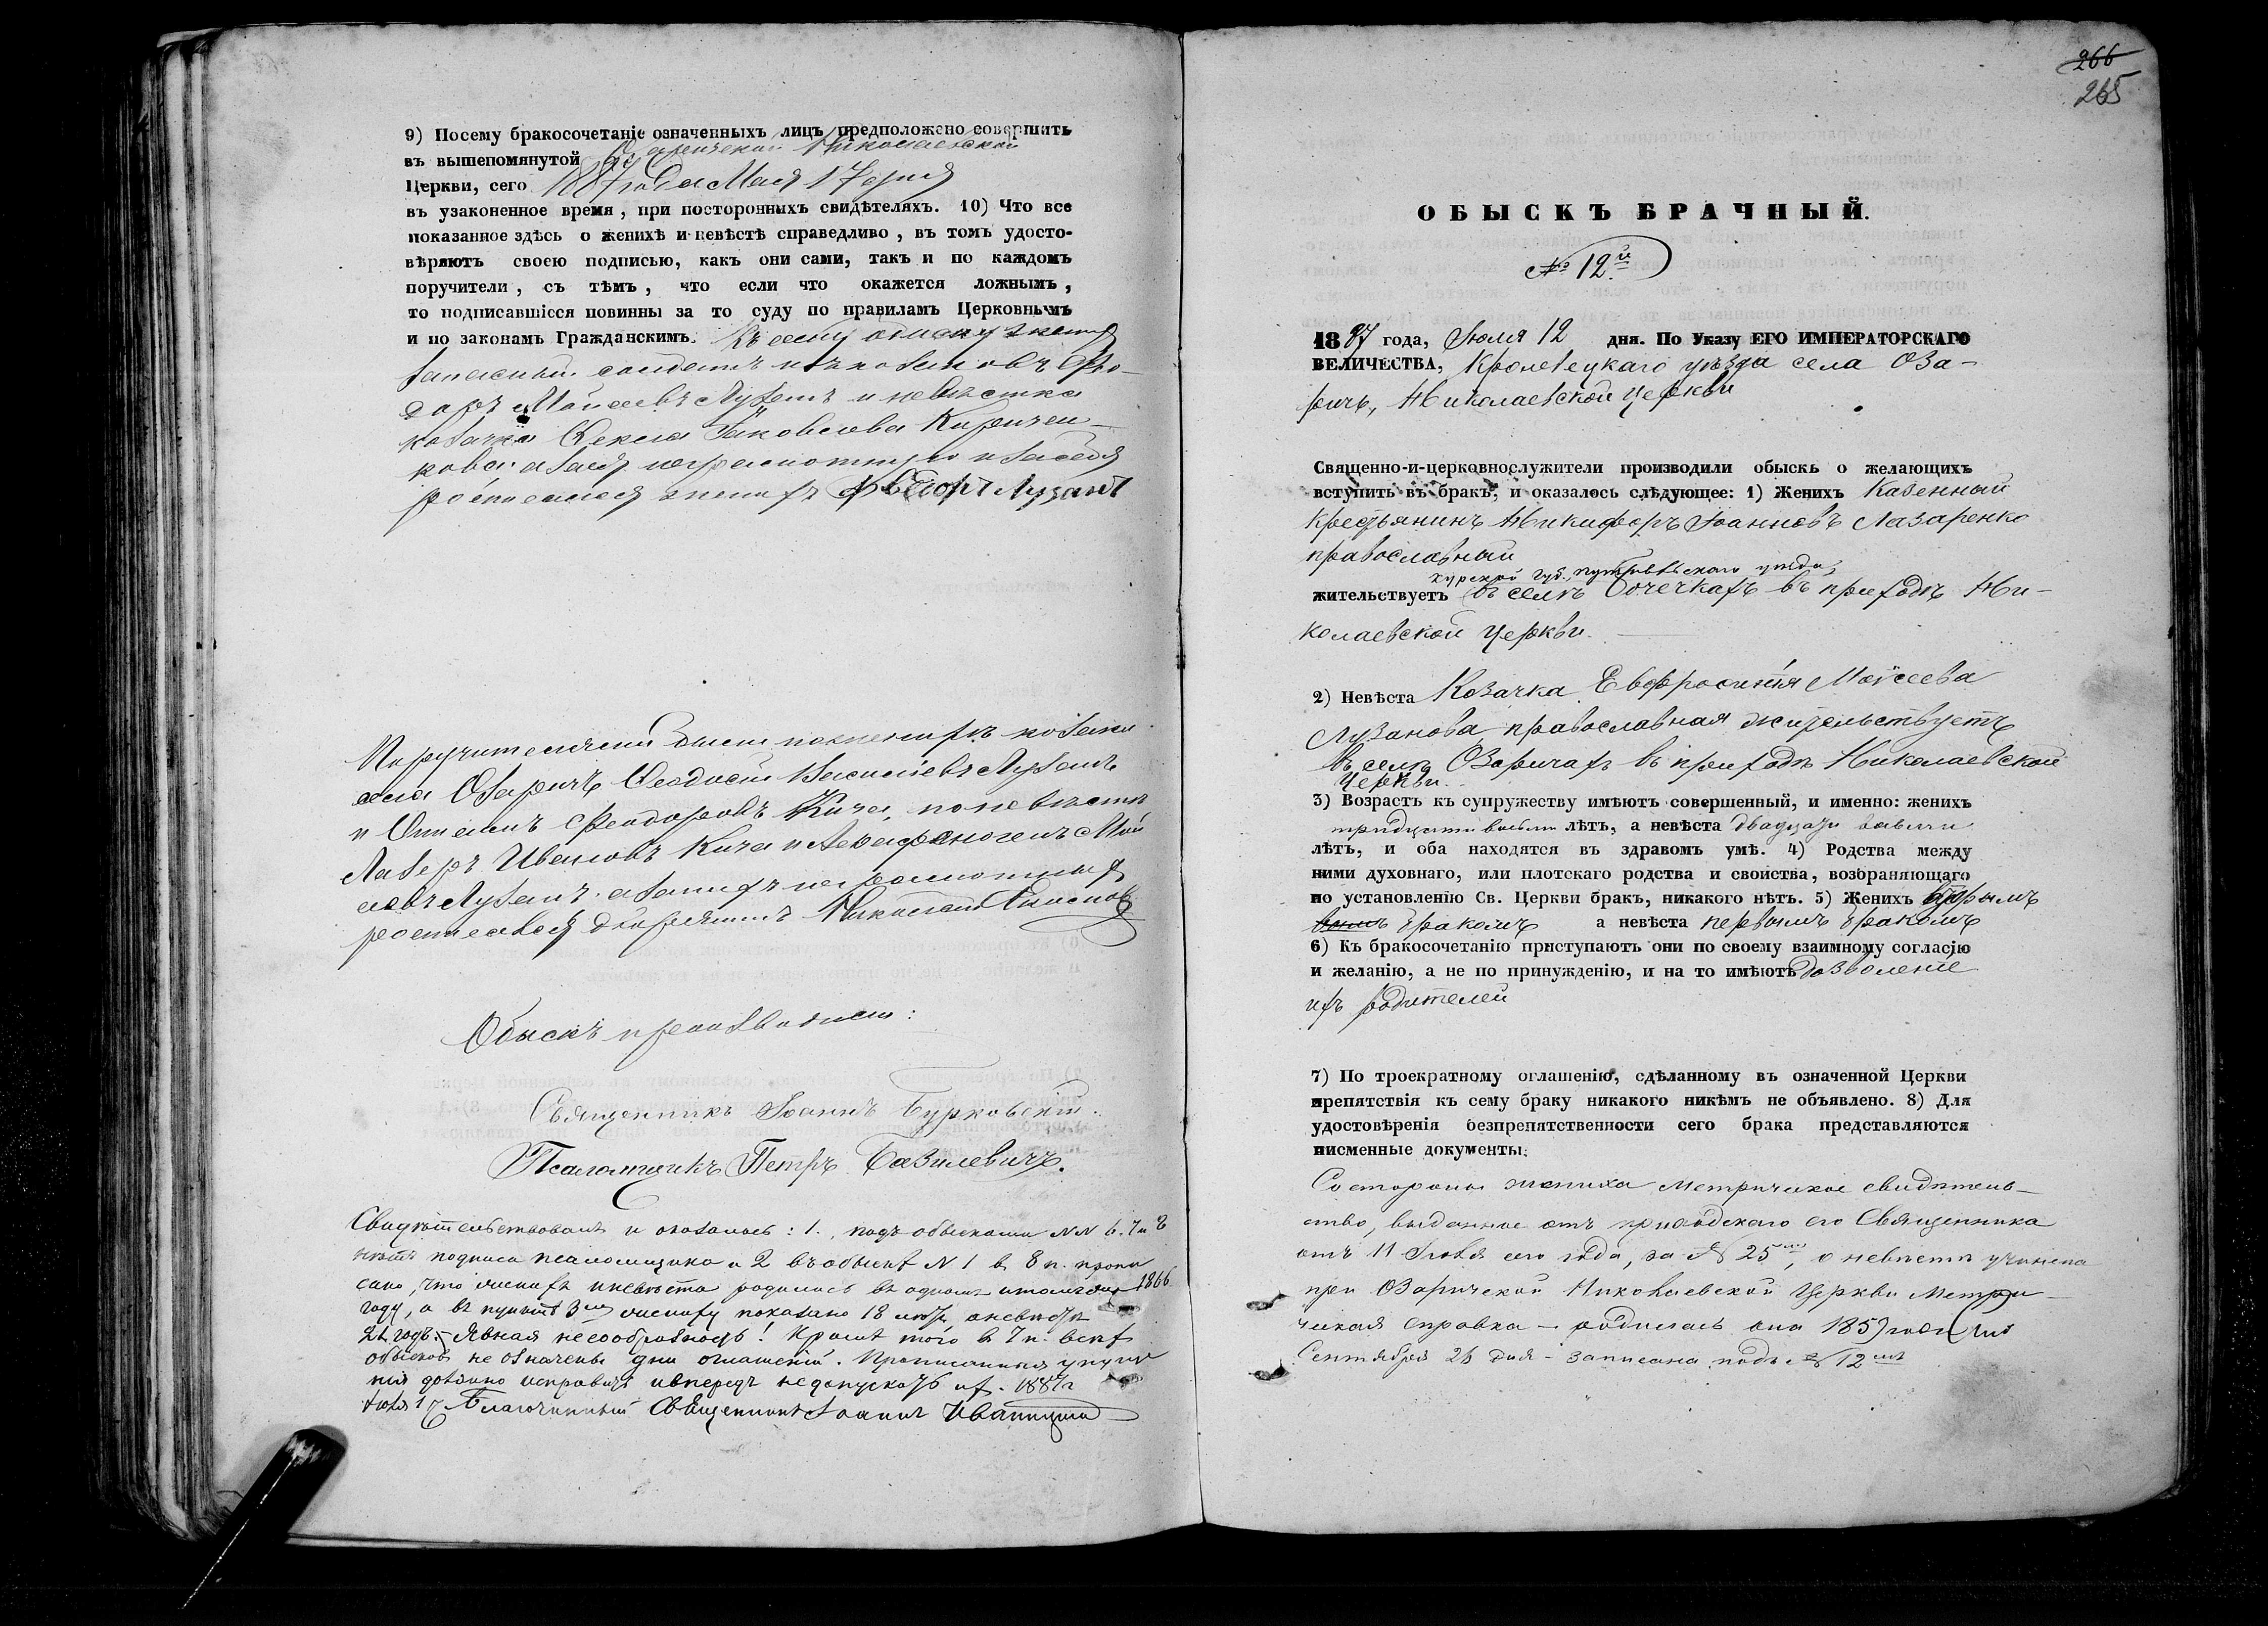 9) Посему бракосочетаніе означенныхъ лицъ предположено совершить
въ вышепомянутой Озарической Николаевской
Церкви, сего 1887 года Мая 17 дня
въ узаконенное время, при постороннихъ свидѣтеляхъ. 10) Что все
показанное здѣсь о женихѣ и невѣстѣ справедливо, въ томъ удосто-
вѣряютъ своею подписью, какъ они сами, такъ и по каждомъ
поручители, съ тѣмъ, что если что окажется ложнымъ,
то подписавшіеся повинны за то суду по правиламъ Церковнымъ
и по законамъ Гражданскимъ. Къ сему обыску женихъ
запасный солдатъ изъ козаковъ Фео-
доръ Моисеевъ Лузанъ и невѣста
козачка Іаковлева Кириен-
кова а за ея неграмотную и за себя
росписался женихъ Ѳеодоръ Лузанъ
Поручителями были по женихѣ козаки
села Озаричъ Ѳеодосій Василіевъ Лузанъ
и Феодоровъ Кича, по невѣстѣ
Лазарь Ивановъ Кича и Моѵ
сеевъ Лузанъ. а за нихъ неграмотныхъ
росписался дворянинъ Николай
Обыскъ производили:
Священникъ Іоаннъ Бурковскій.
Псаломщикъ Петръ Базилевичъ.
Свидѣтельствовалъ и оказалось: 1., подъ обысками NN 6. 7 и 8
нѣтъ подписа псаломщика и 2 въ обыскѣ N 1 в 8 п. пропи
сано, что женихъ и невѣста родились въ одномъ и томъ же 1866
году, а въ пунктѣ 3мъ жениху показано 18 лѣтъ, а невѣстѣ
21 годъ. – Явная несообразность! Кромѣ того в 7 п. всѣхъ
обысковъ не означены дни оглашеній. Прописанныя упуще
нія должно исправить и впередъ не допускать ихъ. 1887 г.
Іюля 17 Благочинный Священникъ Іоаннъ
266
265
ОБЫСКЪ БРАЧНЫЙ.
№ 12й
1887 года, Іюля 12 дня. По Указу ЕГО ИМПЕРАТОРСКАГО
ВЕЛИЧЕСТВА, Кролевецкаго уѣзда села Оза-
ричъ, Николаевской церкви
Священно-и-церковнослужители производили обыскъ о желающихъ
вступить въ бракъ, и оказалось слѣдующее: 1) Женихъ Казенный
Крестьянинъ Никифоръ Іоанновъ Лазаренко
православный
Курской губ., Путивльскаго уѣзда,
жительствуетъ въ селѣ Бочечкахъ въ приходѣ Ни-
колаевской церкви.
2) Невѣста Козачка Евфросинія Моисеева
Лузанова, православная жительствуетъ
въ селѣ Озаричахъ въ приходѣ Николаевской
церкви.
3) Возрастъ къ супружеству имѣютъ совершенный, и именно: женихъ
тридцати восьми лѣтъ, а невѣста двадцати восьми
лѣтъ, и оба находятся въ здравомъ умѣ. 4) Родства между
ними духовнаго, или плотскаго родства и свойства, возбраняющаго
по установленію Св. Церкви бракъ, никакого нѣтъ. 5) Женихъ вторымъ
бракомъ а невѣста первымъ бракомъ
6) Къ бракосочетанію приступаютъ они по своему взаимному согласію
и желанію, а не по принужденію, и на то имѣютъ дозволеніе
ихъ родителей
7) По троекратному оглашенію, сдѣланному въ означенной Церкви
препятствія къ сему браку никакого никѣмъ не объявлено. 8) Для
удостовѣренія безпрепятственности сего брака представляются
писменные документы:
Со стороны жениха метрическое свидѣтель-
ство, выданное отъ приходскаго его Священника
отъ 11 Іюля сего года, за № 25мъ, о невѣстѣ учинена
при Озарической Николаевской Церкви Метри-
ческая справка – родилась она 1859 года
Сентября 26 дня – записана подъ № 12мъ